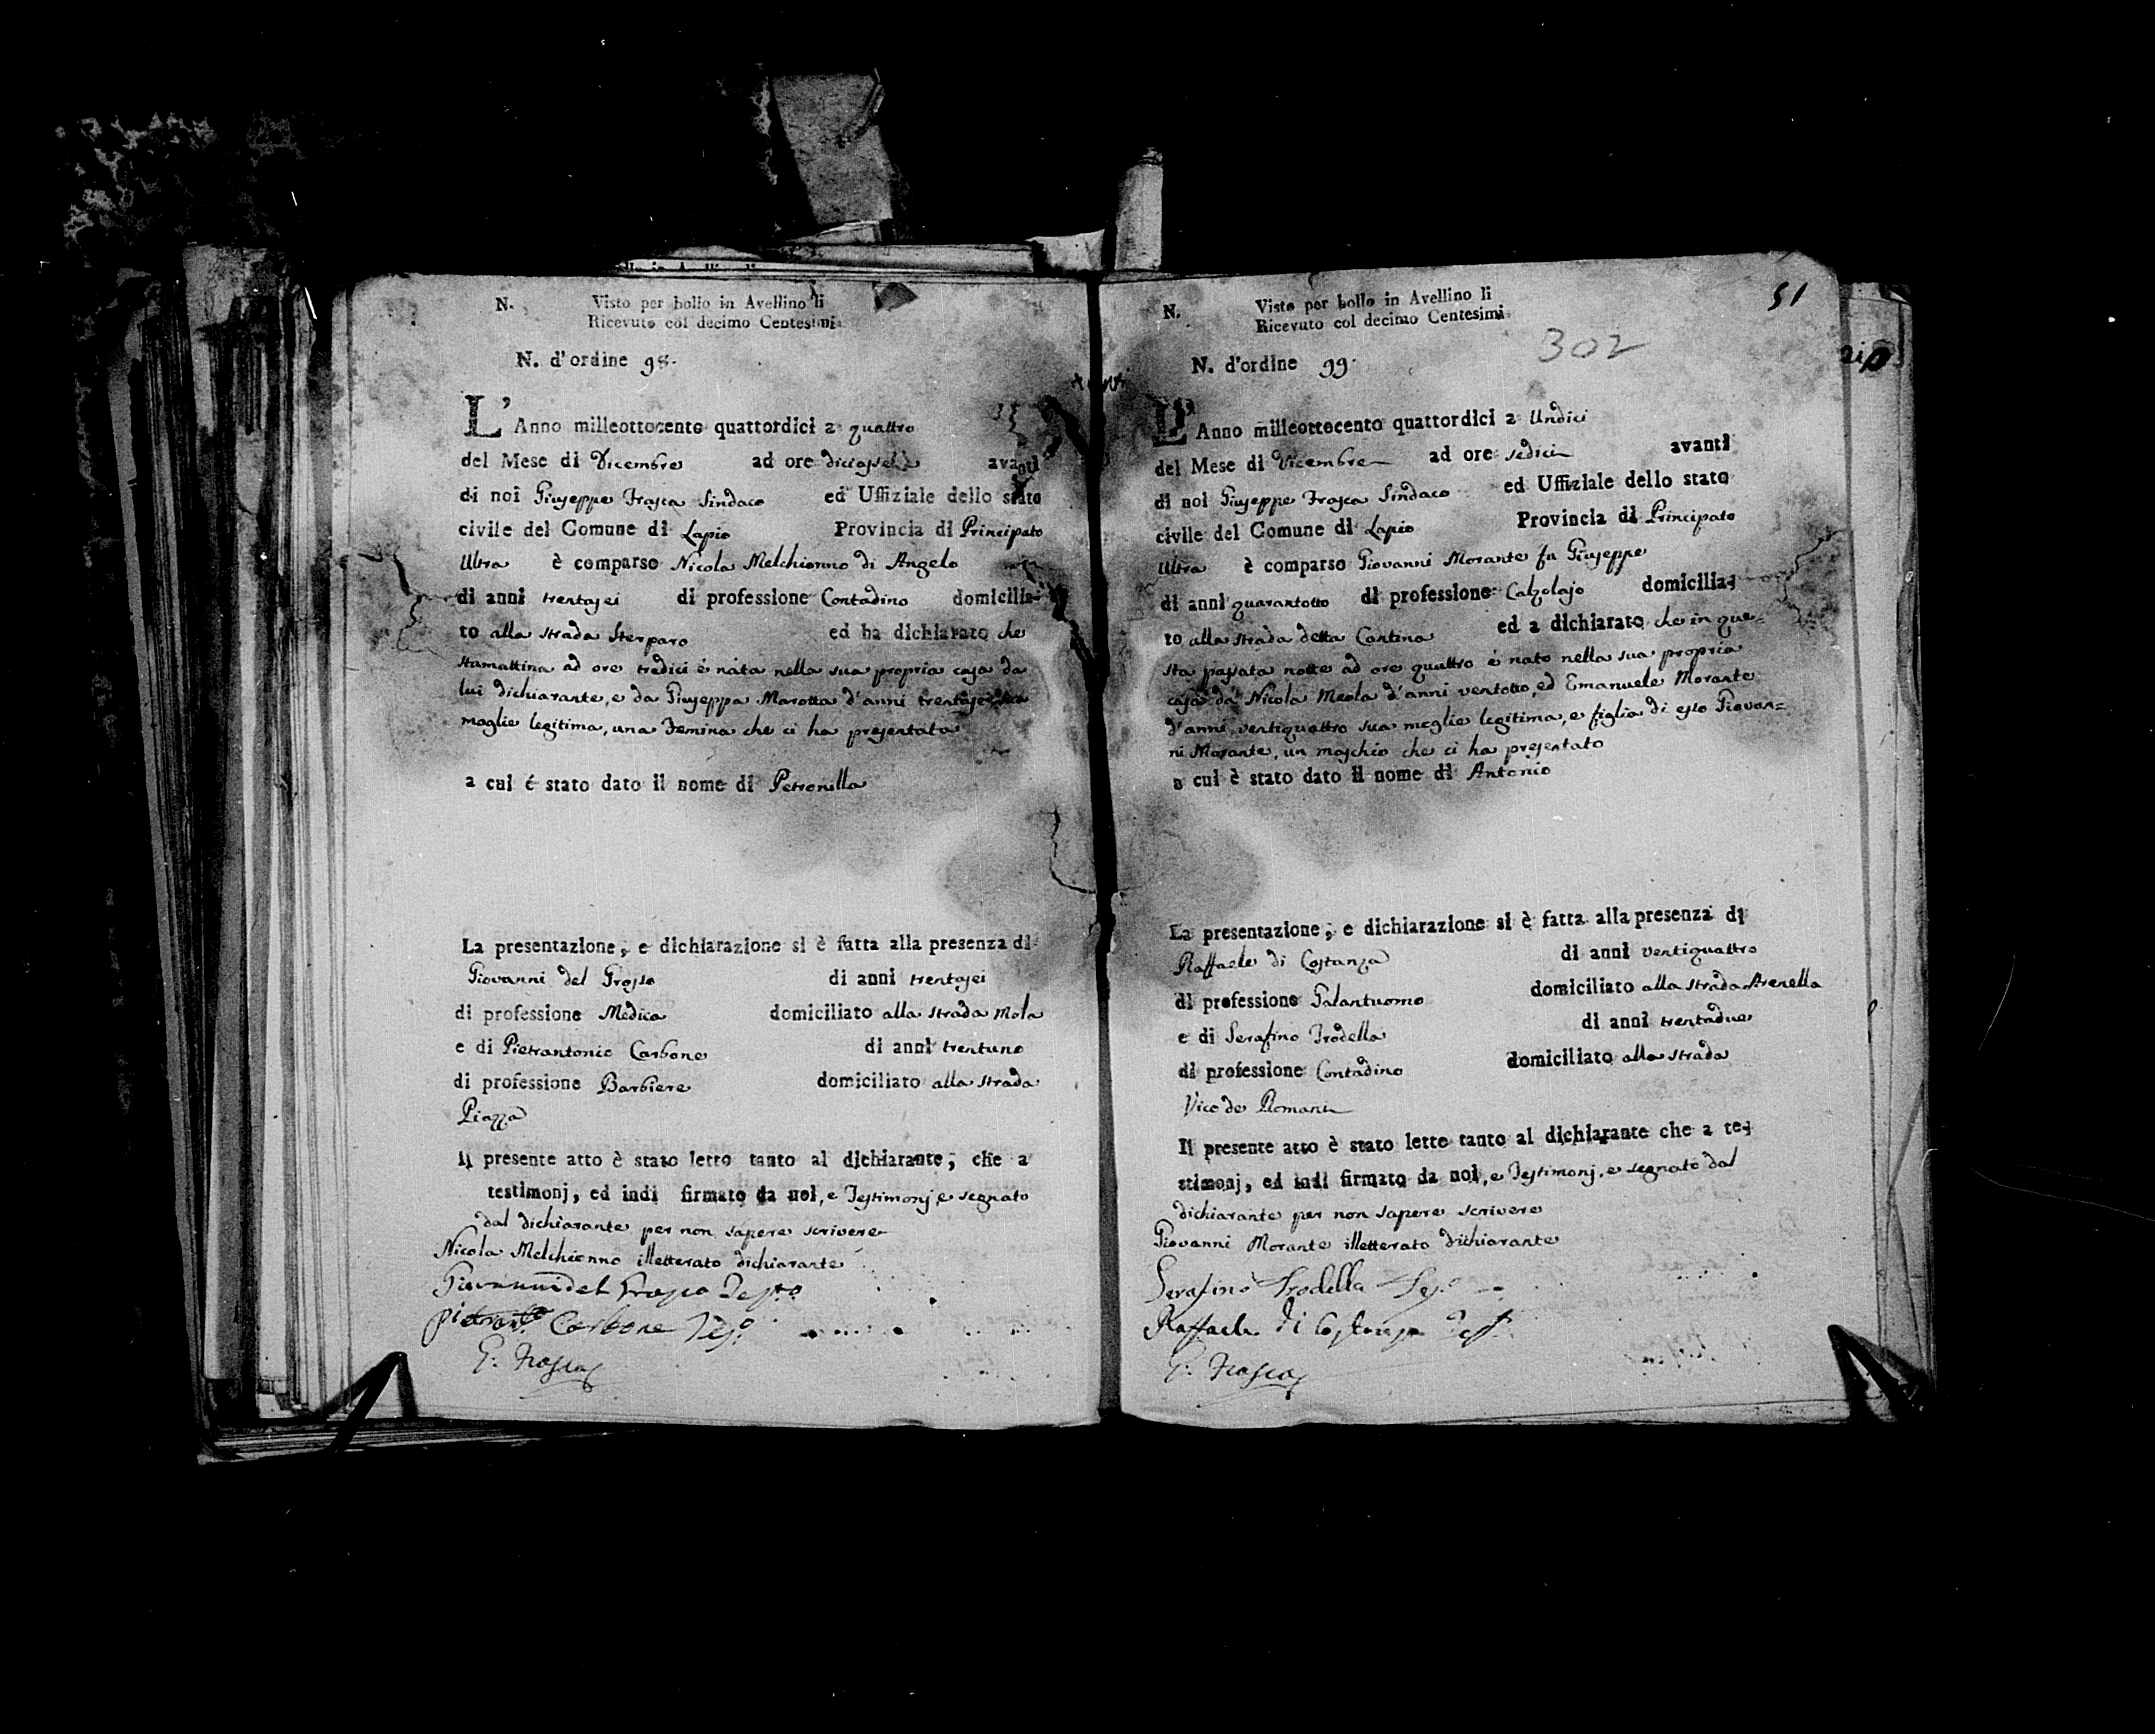 N. Visto per bollo in Avellino li
Ricevuto col decimo Centesimi
N. d'ordine 98.
L'Anno milleottocento quattordici a quattro
del Mese di Dicembre ad ore diciasette avanti
di noi Giuseppe Frasca Sindaco ed Uffiziale dello stato
civile del Comune di Lapio Provincia di Principato
Ultra è comparso Nicola Melchionno di Angelo
di anni trentasei di professione Contadino domicilia-
to alla strada Sterparo ed ha dichiarato che
stamattina ad ore tredici è nata nella sua propria casa da
lui dichiarante, e da Giuseppa Marotta d'anni trentasei sua
moglie legitima, una Femina che ci ha presentata
a cui é stato dato il nome di Petronilla
La presentazione, e dichiarazione si è fatta alla presenza di
Giovanni del Grosso di anni trentasei
di professione Medico domiciliato alla strada Mola
e di Pietrantonio Carbone di anni trentuno
di professione Barbiere domiciliato alla strada
Piazza
Il presente atto è stato letto tanto al dichiarante, che a
testimonj, ed indi firmato da noi, e Testimonj, e segnato
dal dichiarante per non sapere scrivere
Nicola Melchionno illetterato dichiarante
Giovanni del Grosso Testo
Carbone Teso
G. Frasca
51
N. Visto per bollo in Avellino li
Ricevuto col decimo Centesimi
302
N. d'ordine 99.
L'Anno milleottocento quattordici a Undici
del Mese di Dicembre ad ore sedici avanti
di noi Giuseppe Frasca Sindaco ed Uffiziale dello stato
civile del Comune di Lapio Provincia di Principato
Ultra è comparso Giovanni Morante fu Giuseppe
di anni quarantotto di professione Calzolajo domicilia-
to alla strada detta Cantina ed a dichiarato che in que=
sta passata notte ad ore quattro è nato nella sua propria
casa da Nicola Meola d'anni ventotto, ed Emanuele Morante
d'anni ventiquattro sua moglie legitima, e figlia di esso Giovan=
ni Morante, un maschio che ci ha presentato
a cui è stato dato il nome di Antonio
La presentazione, e dichiarazione si è fatta alla presenza di
Raffaele di Costanza di anni ventiquattro
di professione Galantuomo domiciliato alla strada Arenella
e di Serafino Trodella di anni trentadue
di professione Contadino domiciliato alla strada
Vico de Romani
Il presente atto è stato letto tanto al dichiarante che a te-
stimonj, ed indi firmato da noi, e Testimonj, e segnato dal
dichiarante per non sapere scrivere
Giovanni Morante illetterato dichiarante
Serafino Trodella Teso
Raffaele Di Costanza Test
G. Frasca